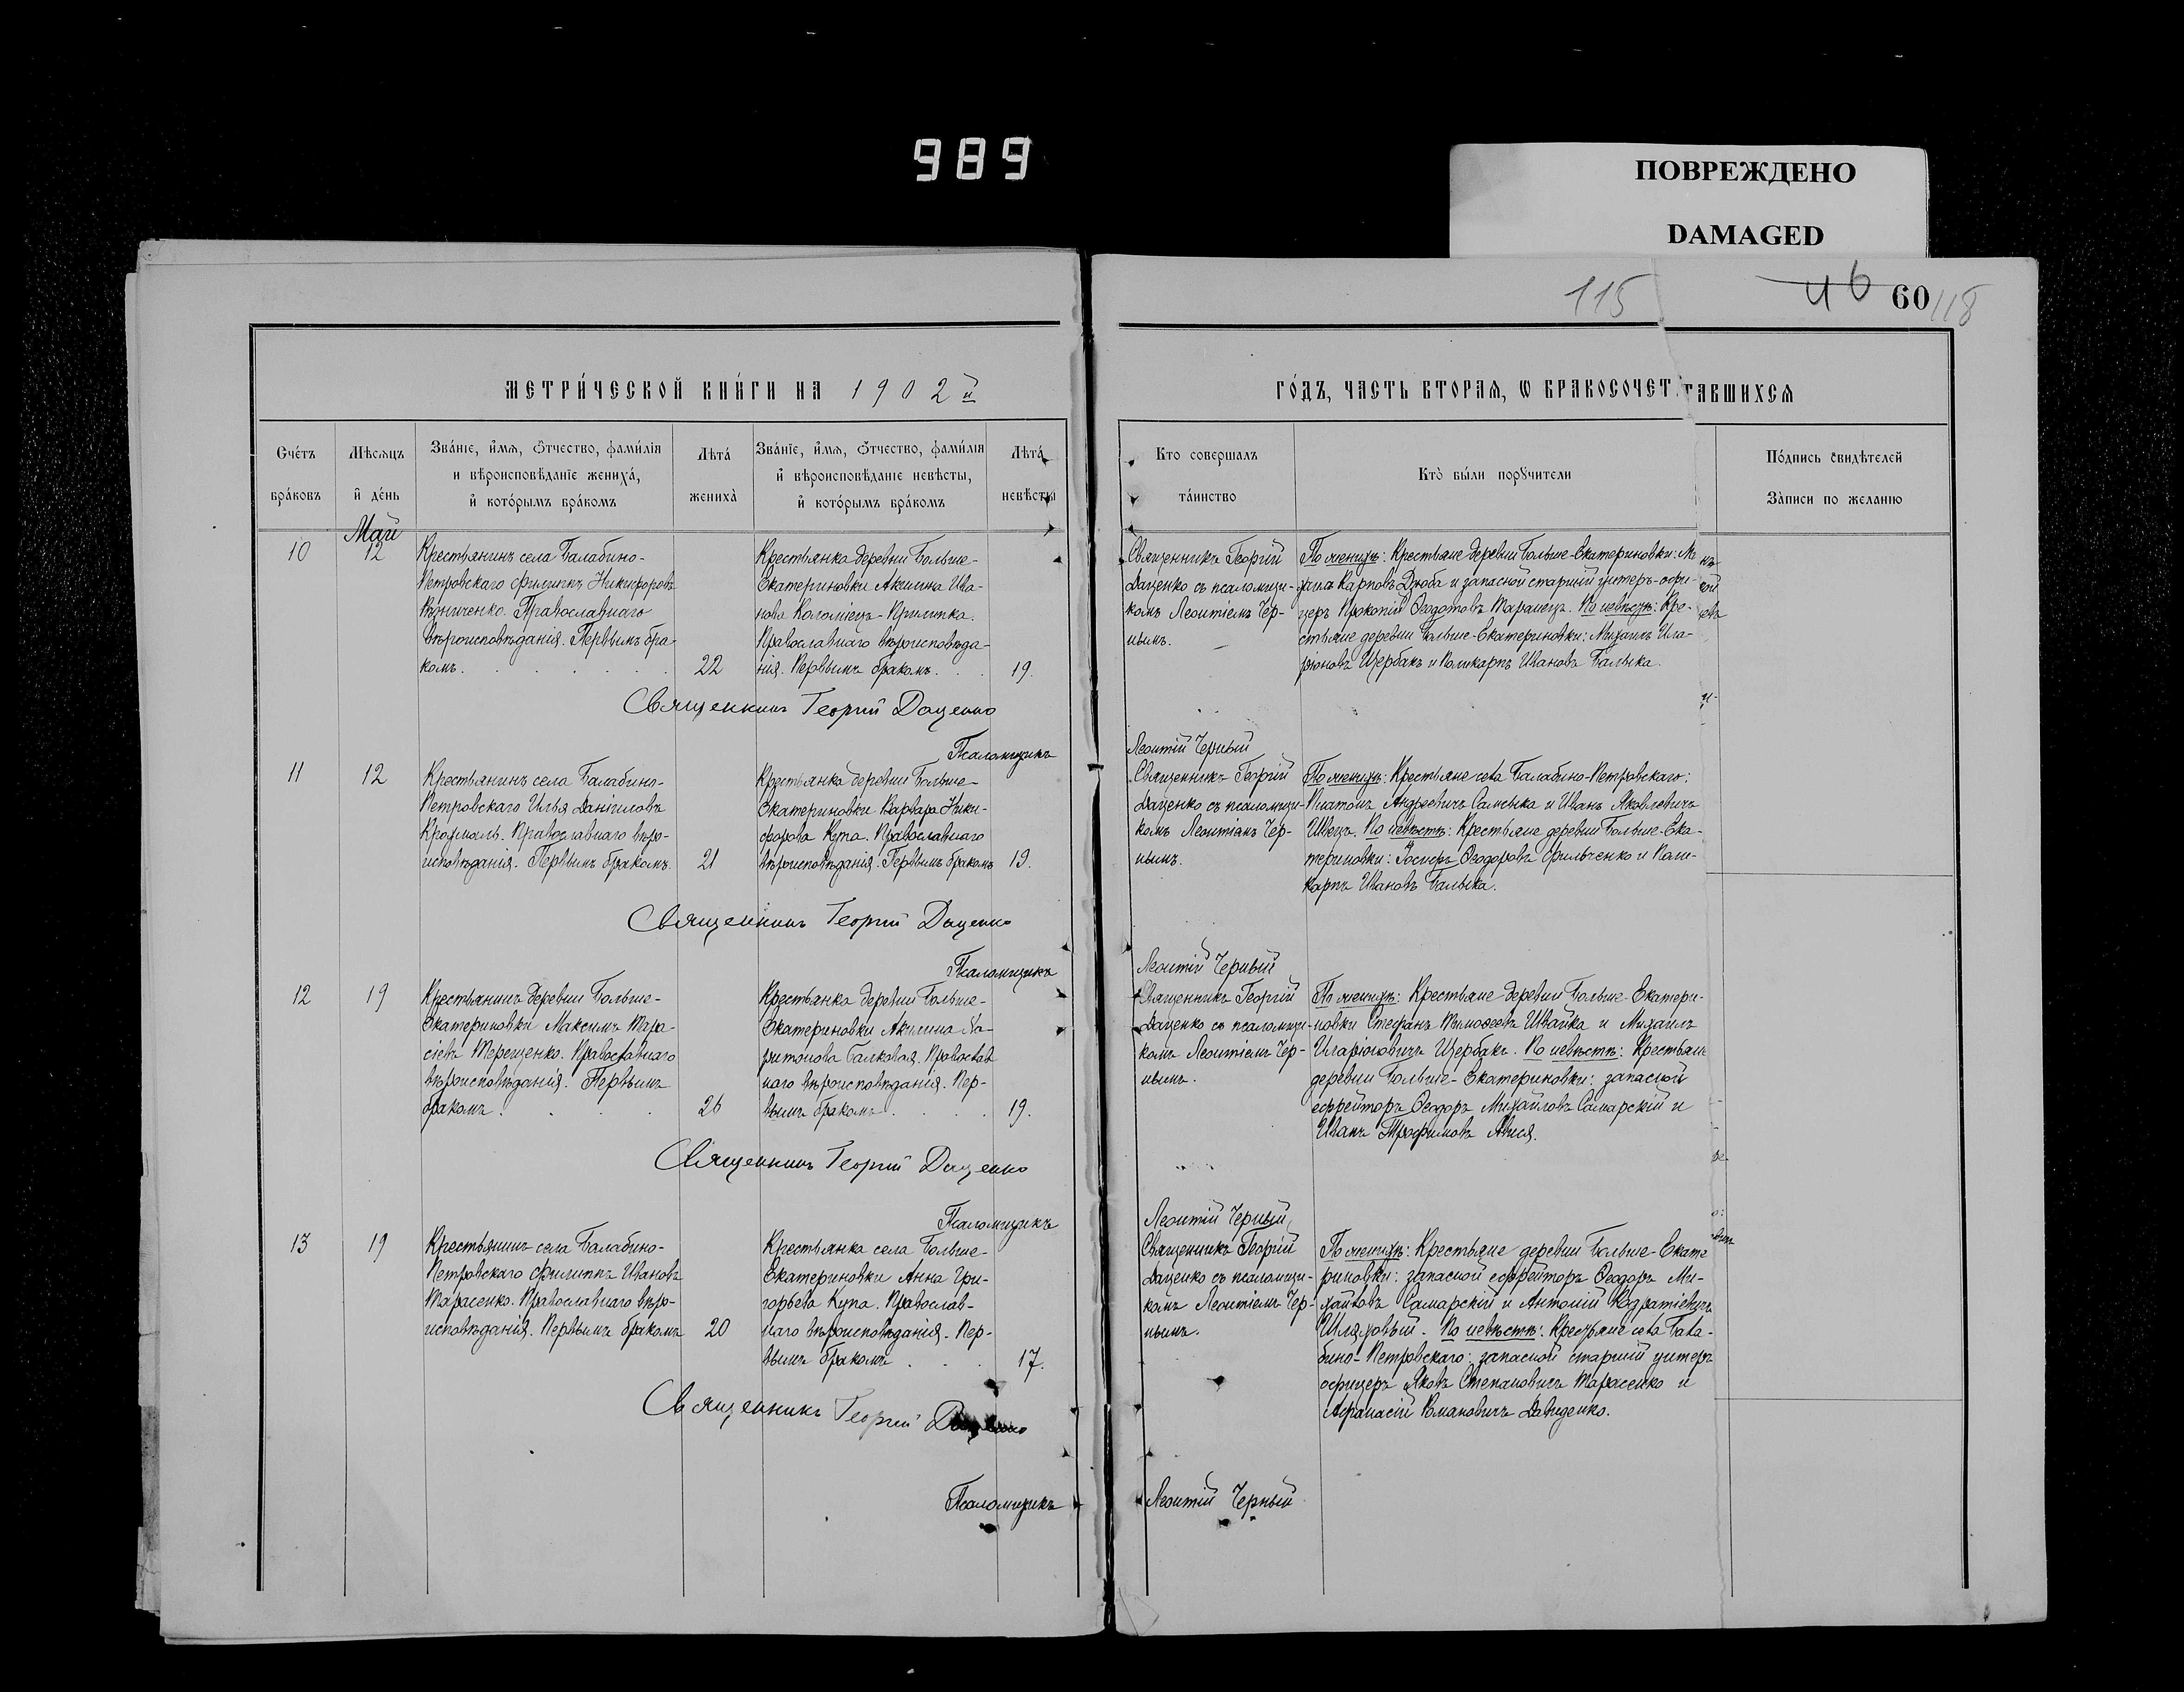 989
ПОВРЕЖДЕНО
DAMAGED
115
46 60 118
МЕТРИ́ЧЕСКОЙ КНИ́ГИ НА 1902й
ГО́ДЪ, ЧАСТЬ ВТОРАЯ, Ѡ БРАКОСОЧЕТ ТАВШИХСЯ
Сче́тъ
бра́ковъ
Мѣсяцъ
и҆ де́нь
Зва́нїе, и҆́мя, ѻ҆́тчество, фами́лїя
и вѣроисповѣ́данїе жениха̀,
и҆ кото́рымъ бра́комъ
Лѣта̀
жениха̀
Зва́нїе, и҆́мя, ѻ҆́тчество, фами́лїя
и҆ вѣроисповѣ́данїе невѣ́сты,
и҆ кото́рымъ бра́комъ
Лѣта̀
невѣ́сты
Кто совершалъ
та́инство
Кто̀ бы́ли порꙋчители
По́дпись свидѣ́телей
За́писи по желанїю
Май
10
12
Крестьянинъ села Балабино-
Петровскаго Филиппъ Никифоровъ
Православнаго
вѣроисповѣданія. Первымъ бра
комъ.
22
Крестьянка деревни Больше-
Екатериновки Акилина Ива-
нова Коломіецъ-Прилипка.
Православнаго вѣроисповѣда-
нія. Первымъ бракомъ.
19.
Священникъ Георгій
Даценко съ псаломщи-
комъ Леонтіемъ Чер-
нымъ.
По женихѣ: Крестьяне деревни Больше-Екатериновки: Ми
хаилъ Карповъ Дзюба и запасной старшій унтеръ-офи-
церъ Прокопій Ѳеодотовъ Таранецъ. По невѣстѣ: Кре-
стьяне деревни Больше-Екатериновки: Михаилъ Ила-
ріоновъ Щербакъ и Поликарпъ Ивановъ Балыка.
Священникъ Георгій Даценко
Псаломщикъ
Леонтій Черный
11
12
Крестьянинъ села Балабино-
Петровскаго Илья Даніиловъ
Крохмаль. Православнаго вѣро-
исповѣданія. Первымъ бракомъ.
21
Крестьянка деревни Больше-
Екатериновки Варвара Ники-
форова Купа. Православнаго
вѣроисповѣданія. Первымъ бракомъ
19.
Священникъ Георгій
Даценко съ псаломщи-
комъ Леонтіемъ Чер-
нымъ.
По женихѣ: Крестьяне села Балабино-Петровскаго:
Платонъ Андреевичъ и Иванъ Яковлевичъ
Швецъ. По невѣстѣ: Крестьяне деревни Больше-Ека-
териновки: Іосифъ Ѳеодоровъ Фильченко и Поли-
карпъ Ивановъ Балыка.
Священникъ Георгій Даценко
Псаломщикъ
Леонтій Черный
12
19
Крестьянинъ деревни Больше-
Екатериновки Максимъ Тара-
сіевъ Терещенко. Православнаго
вѣроисповѣданія. Первымъ
бракомъ.
26
Крестьянка деревни Больше-
Екатериновки Акилина Ха-
ритонова Балковая. Православ
наго вѣроисповѣданія. Пер-
вымъ бракомъ.
19.
Священникъ Георгій
Даценко съ псаломщи-
комъ Леонтіемъ Чер-
нымъ.
По женихѣ: Крестьяне деревни Больше-Екатери-
новки Стефанъ Тимоѳеевъ Швайка и Михаилъ
Иларіоновичъ Щербакъ. По невѣстѣ: Крестьяне
деревни Больше-Екатериновки: запасной
ефрейторъ Ѳеодоръ Михайловъ Самарскій и
Иванъ Трофимовъ
Священникъ Георгій Даценко
Псаломщикъ
Леонтій Черный
13
19
Крестьянинъ села Балабино-
Петровскаго Филиппъ Ивановъ
Тарасенко. Православнаго вѣро-
исповѣданія. Первымъ бракомъ
20
Крестьянка села Больше-
Екатериновки Анна Гри-
горьева Купа. Православ-
наго вѣроисповѣданія. Пер-
вымъ бракомъ
17.
Священникъ Георгій
Даценко съ псаломщи-
комъ Леонтіемъ Чер-
нымъ.
По женихѣ: Крестьяне деревни Больше-Екате
риновки: запасной ефрейторъ Ѳеодоръ Ми-
хайловъ Самарскій и Антоній Кодратіевичъ
Шляховый. По невѣстѣ: Крестьяне села Бала-
бино-Петровскаго: запасной старшій унтеръ
офицеръ Яковъ Степановичъ Тарасенко и
Афанасій Романовичъ Давиденко.
Священникъ Георгій Даценко
Псаломщикъ
Леонтій Черный